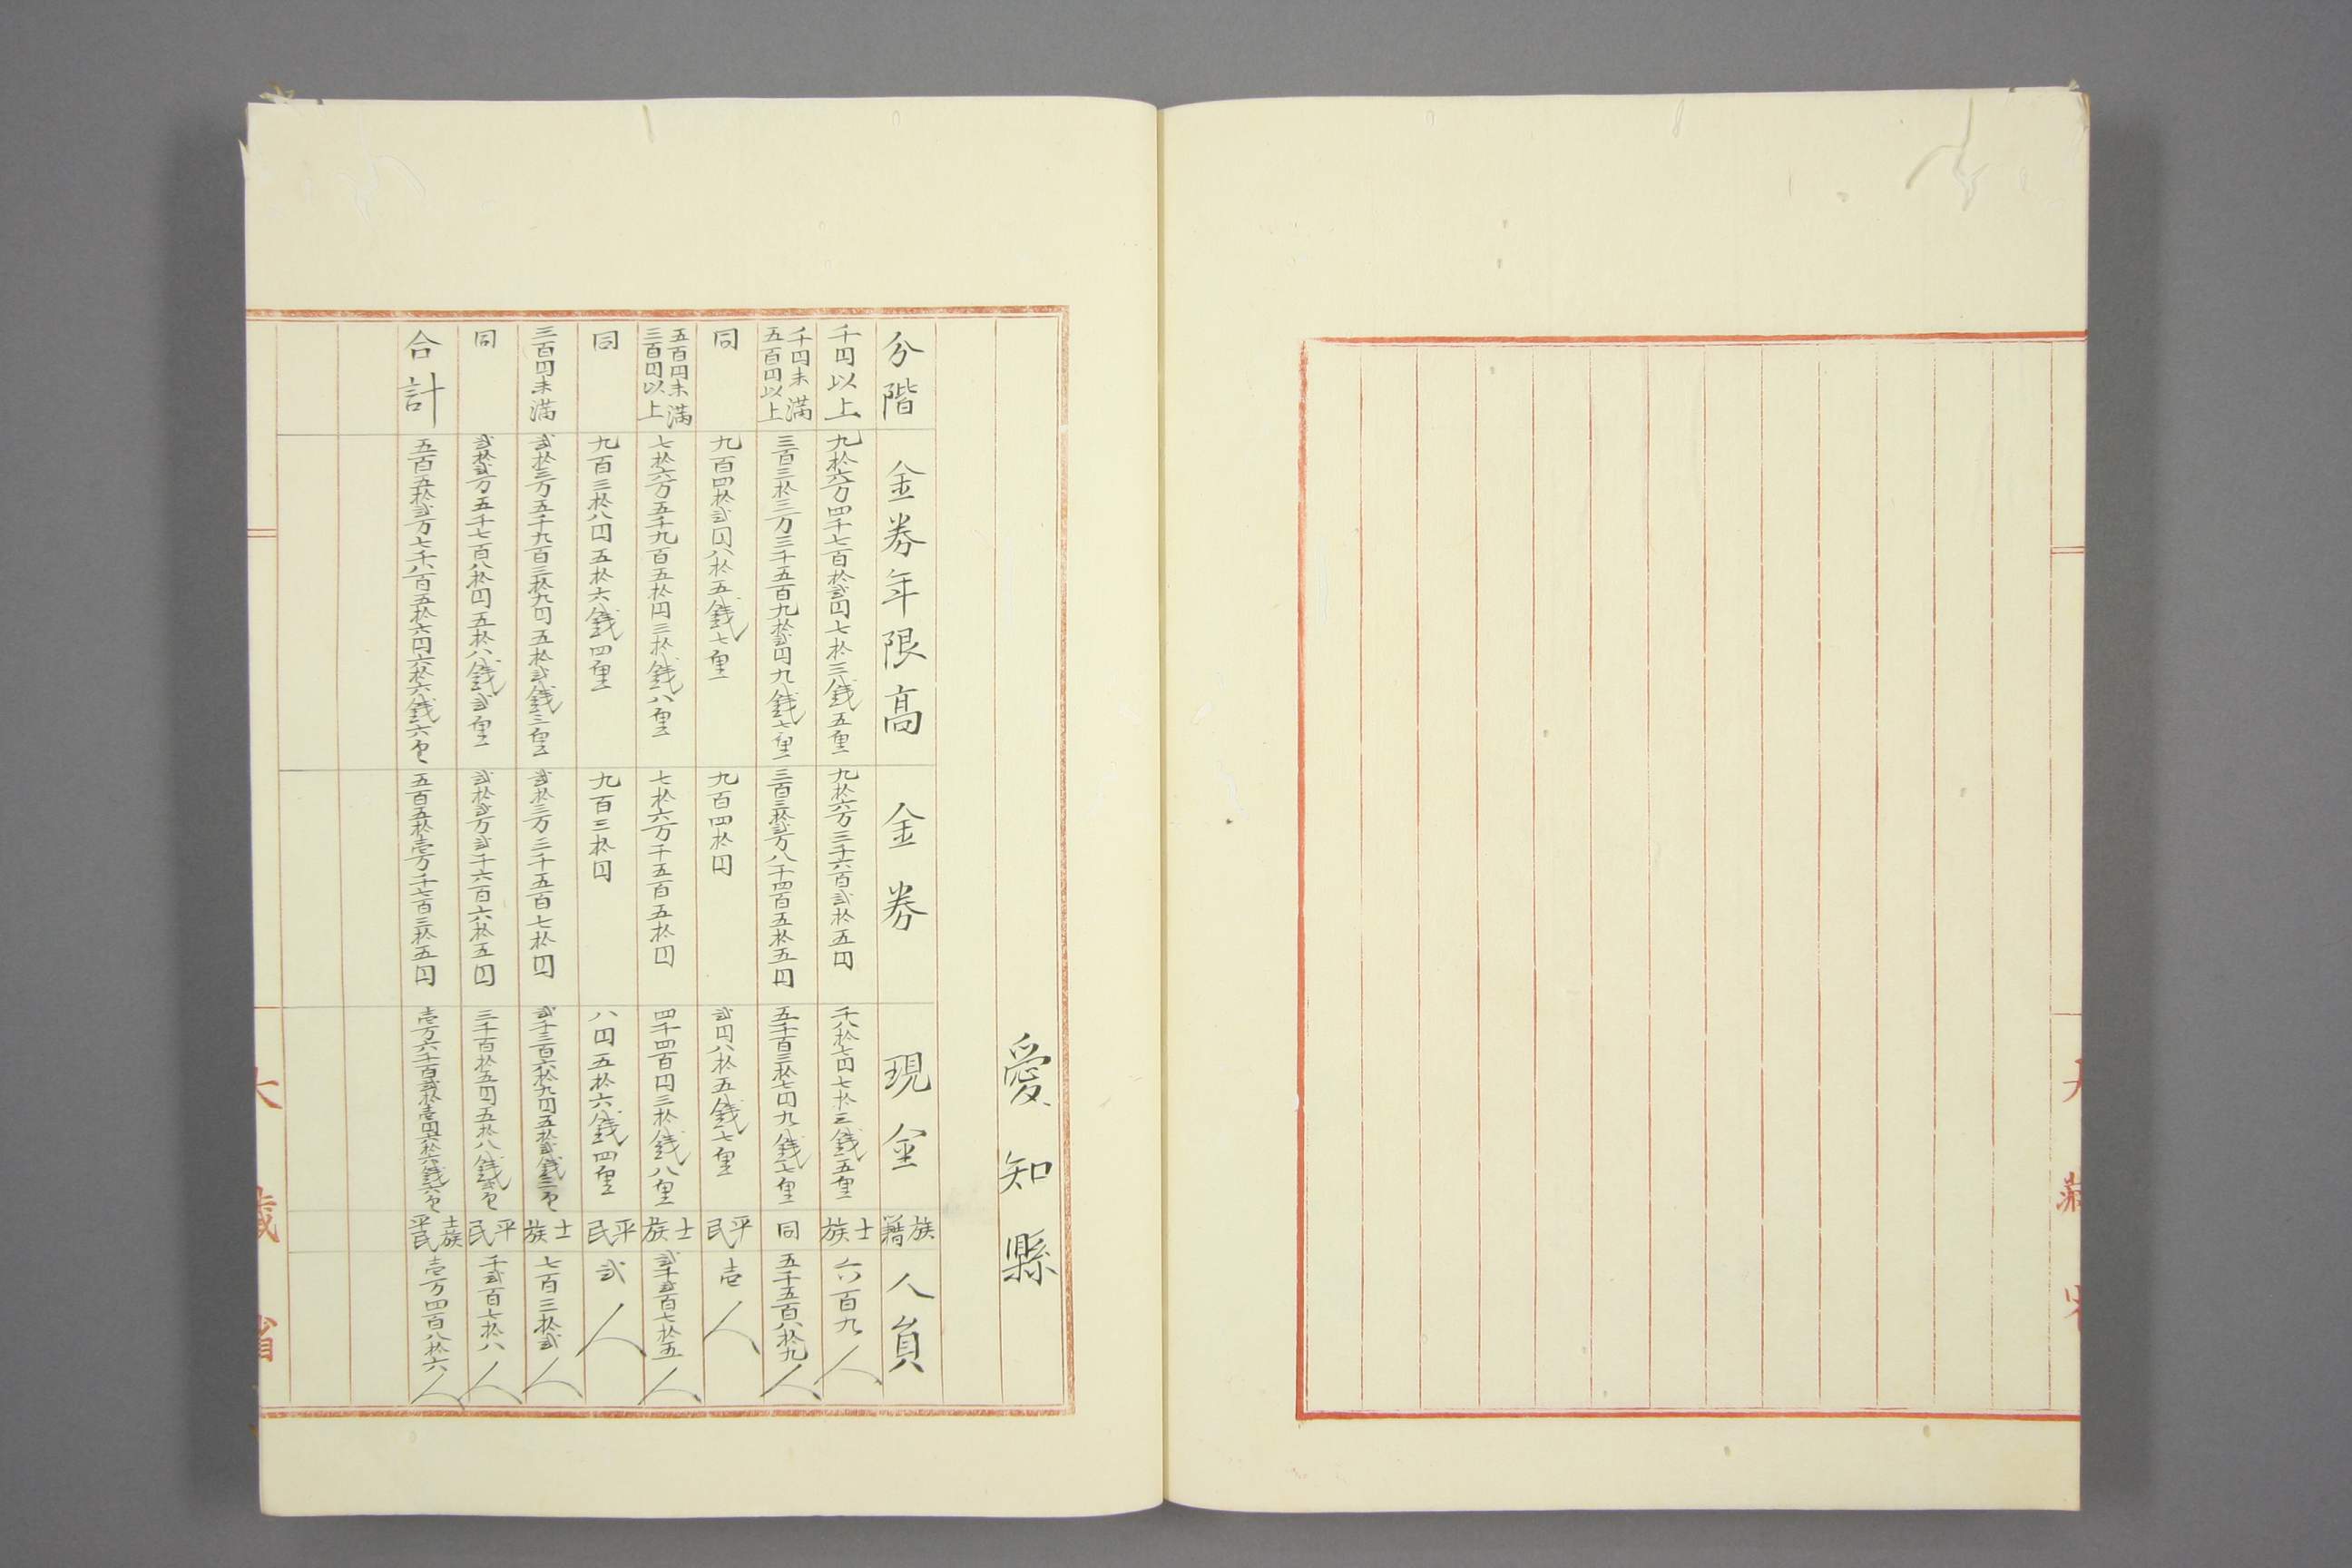 愛知縣
分階 金券年限高 金券 現金 族籍 人員
千円以上 九拾六万四千七百拾弐円七拾三銭五厘 九拾六万三千六百弐拾五円 千八拾七円七拾三銭五厘 士族 六百九人
千円未満五百円以上 三百三拾三万三千五百九拾弐円九銭七厘 三百三拾弐万八千四百五拾五円 五千百三拾七円九銭七厘 同 五千五百八拾九人
同 九百四拾弐円八拾五銭七厘 九百四拾円 弐円八拾五銭七厘 平民 壱人
五百円未満三百円以上 七拾六万五千九百五拾円三拾銭八厘 七拾六万千五百五拾円 四千四百円三拾銭八厘 士族 弐千弐百七拾五人
同 九百三拾八円五拾六銭四厘 九百三拾円 八円五拾六銭四厘 平民 弐人
三百円未満 弐拾三万五千九百三拾九円五拾弐銭三厘 弐拾三万三千五百七拾円 弐千三百六拾九円五拾弐銭三厘 士族 七百三拾弐人
同 弐拾弐万五千七百八拾円五拾八銭弐厘 弐拾弐万弐千六百六拾五円 三千百拾五円五拾八銭弐厘 平民 千弐百七拾八人
合計 五百五拾弐万七千八百五拾六円六拾六銭六厘 五百五拾壱万千七百三拾五円 壱万六千百弐拾壱円六拾六銭六厘 士族平民 壱万四百八拾六人
大蔵省